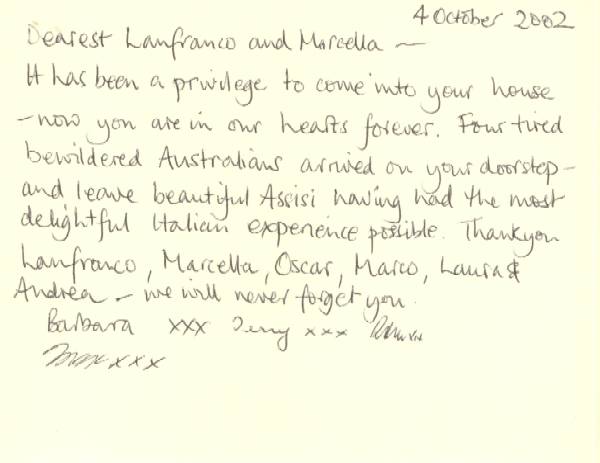 4 October 2002
Dearest Lanfranco and Marcella —
It has been a privilege to come into your house
— now you are in our hearts forever. Four tired
bewildered Australians arrived on your doorstep –
and leave beautiful Assisi having had the most
delightful Italian experience possible. Thankyou
Lanfranco, Marcella, Oscar, Marco, Laura &
Andrea – we will never forget you.
Barbara xxx Terry xxx
xxx